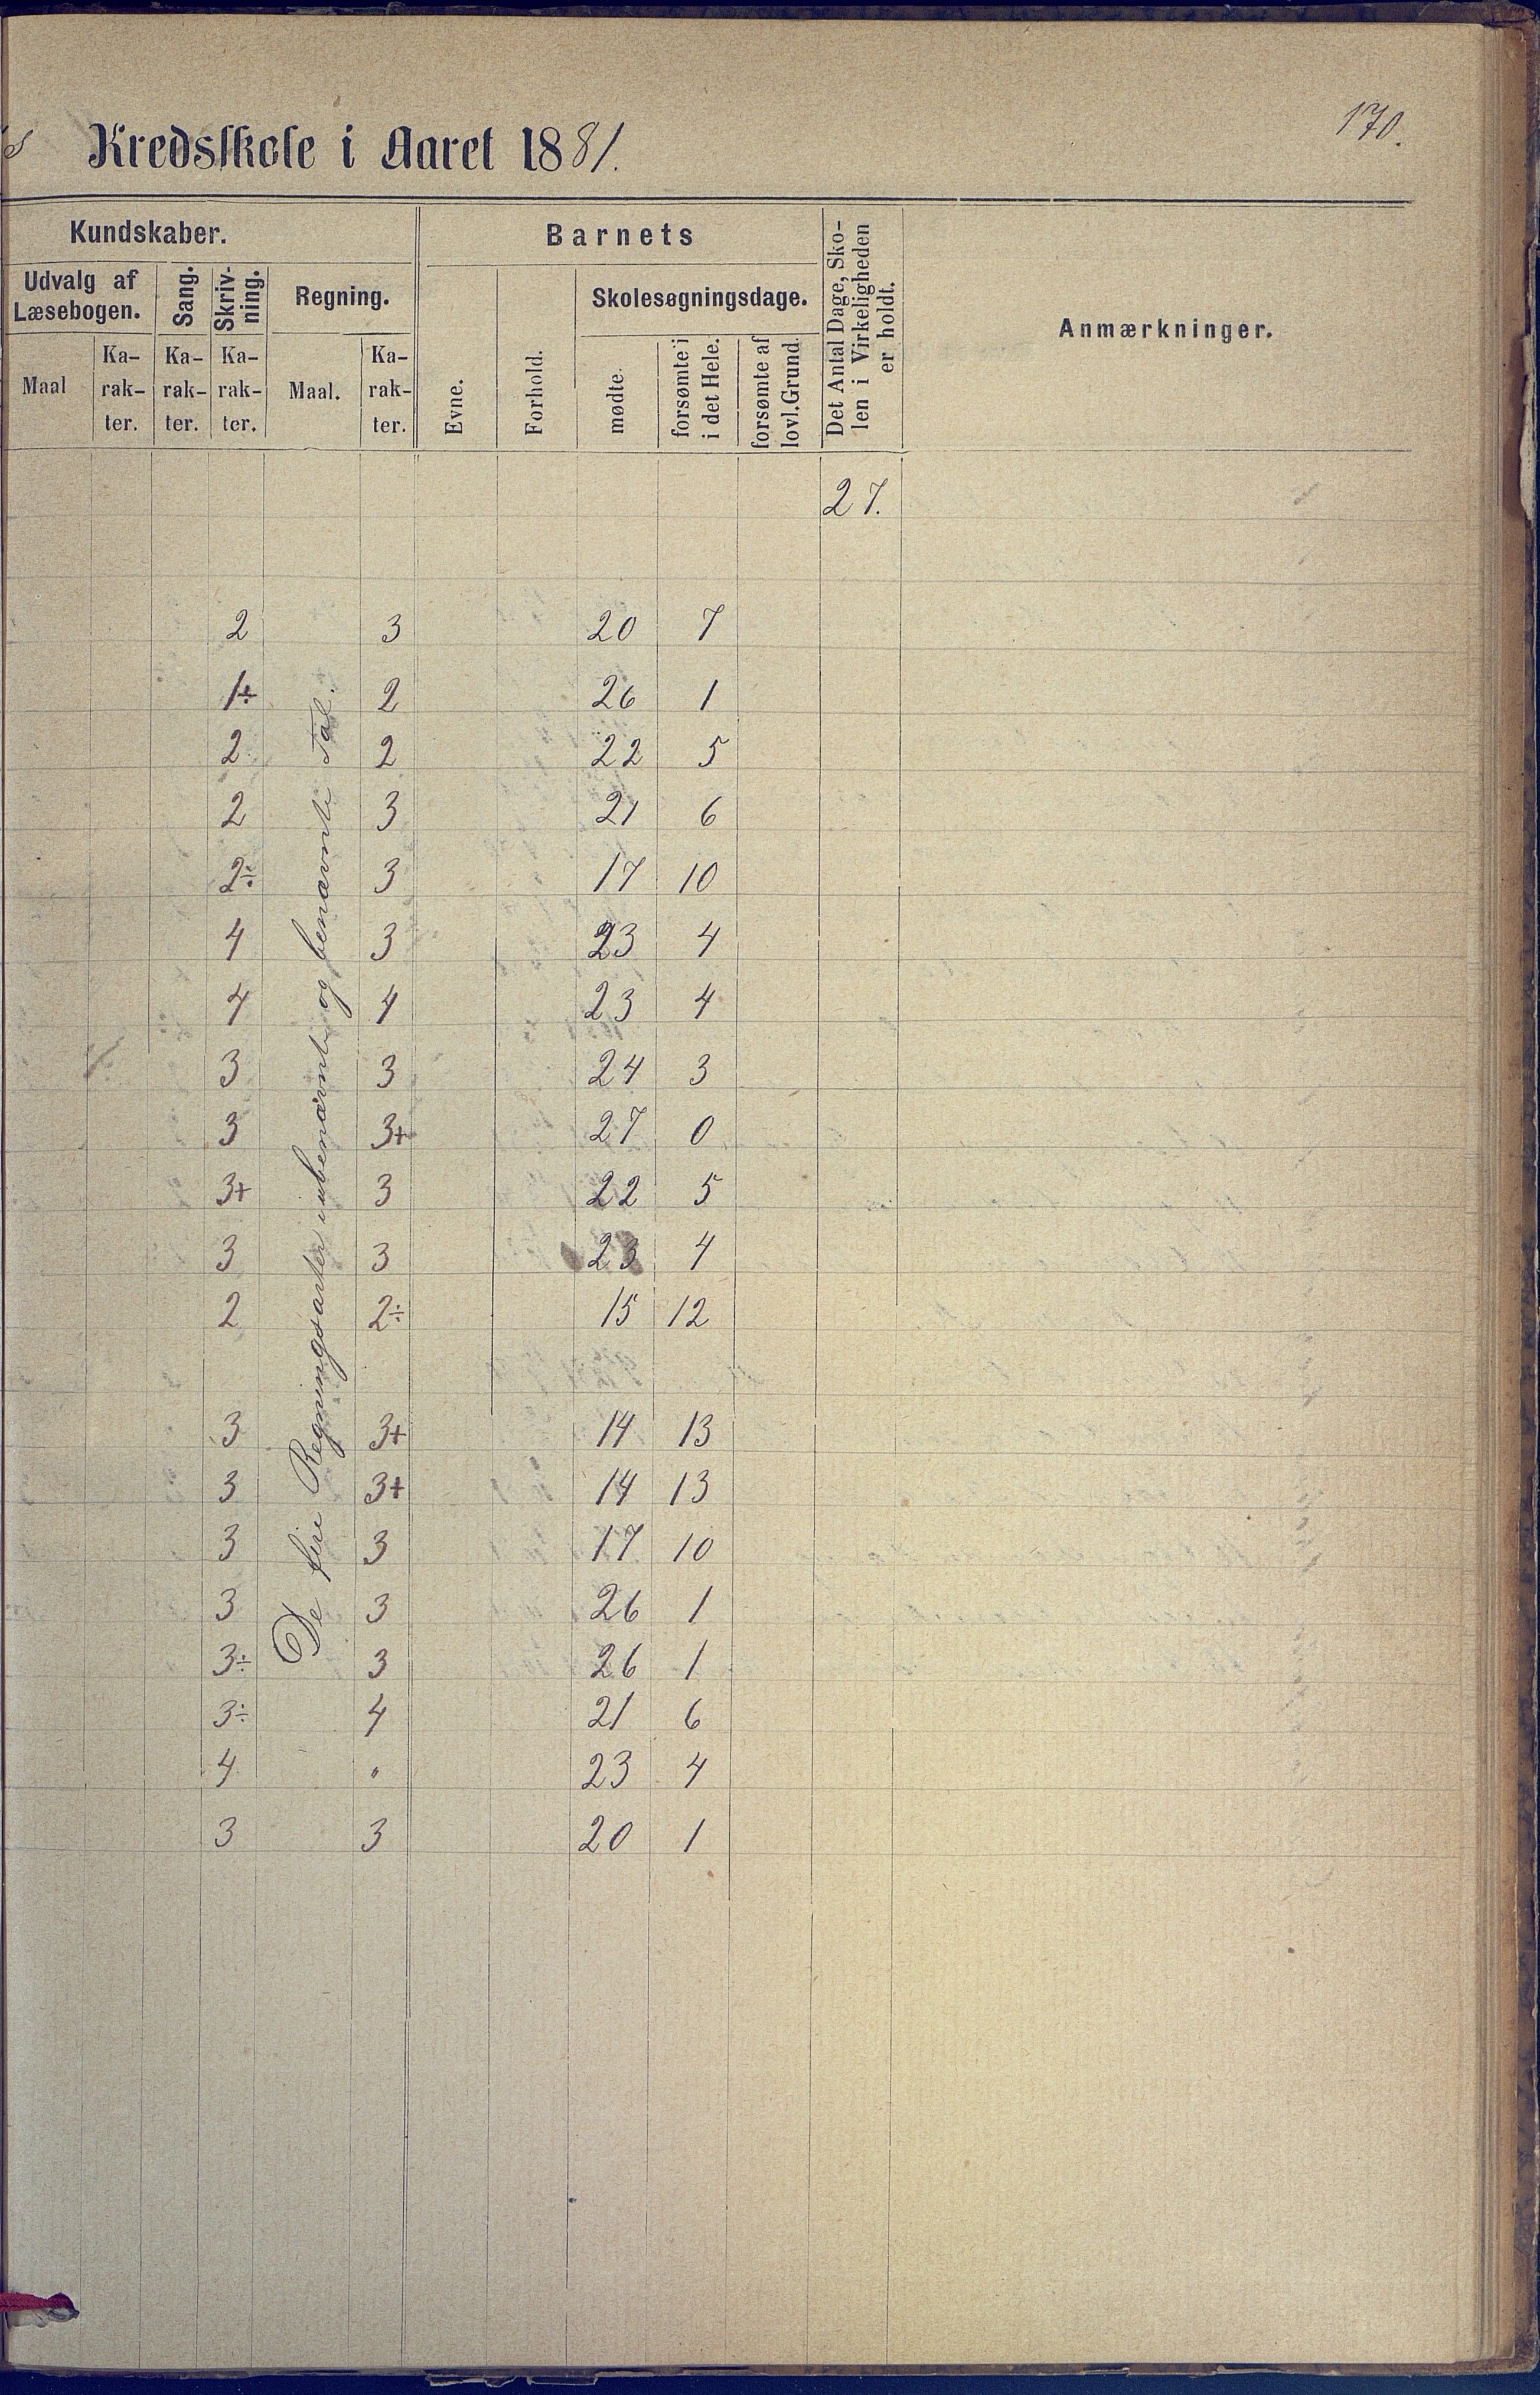 170.
s Kredsskole i Aaret 1881.
Kundskaber. Barnets Det Antal Dage, Sko-
len i Virkeligheden
er holdt. Anmærkninger.
Udvalg af
Læsebogen. Sang. Skriv-
ning. Regning. Evne. Forhold. Skolesøgningsdage.
Maal Ka-
rak-
ter. Ka-
rak-
ter. Ka-
rak-
ter. Maal. Ka-
rak-
ter. mødte. forsømte i
i det Hele. forsømte af
lovl. Grund.
27.
De fire Regningsarter i ubenævnte og benævnte Tal.
2 3 20 7
1÷ 2 26 1
2 2 22 5
2 3 21 6
2÷ 3 17 10
4 3 23 4
4 4 23 4
3 3 24 3
3 3+ 27 0
3+ 3 22 5
3 3 23 4
2 2÷ 15 12
3 3+ 14 13
3 3+ 14 13
3 3 17 10
3 3 26 1
3÷ 3 26 1
3÷ 4 21 6
4 " 23 4
3 3 20 1